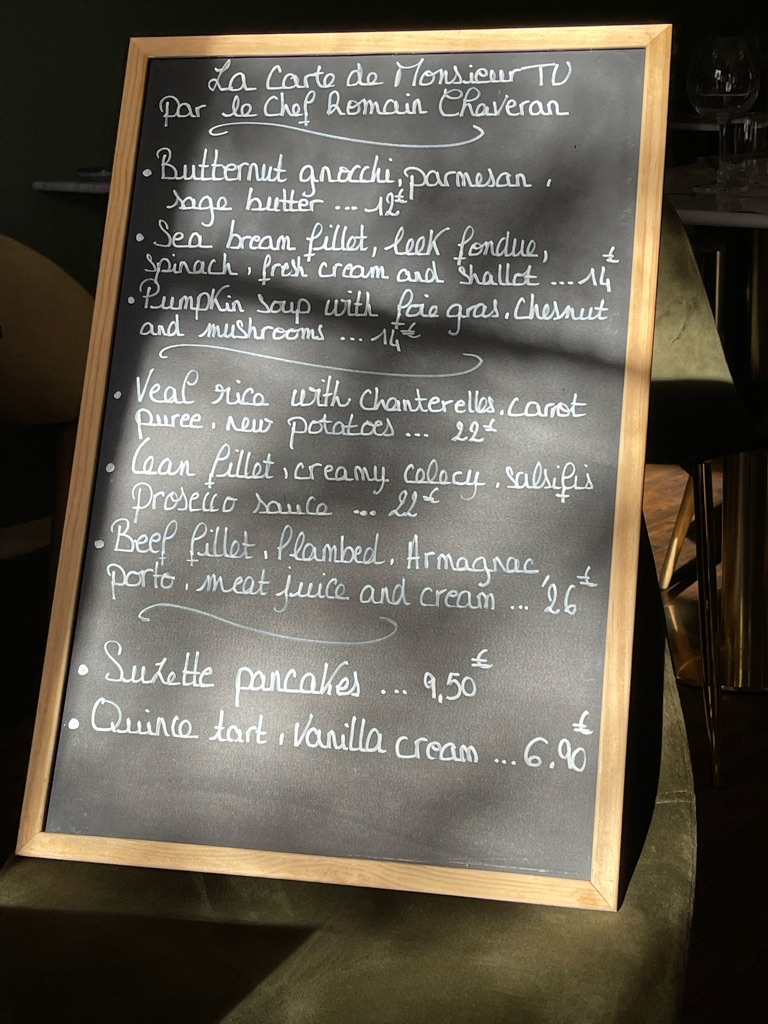 La Carte de Monsieur TV
Par le Chef Romain Chaveran
• Butternut gnocchi, parmesan,
sage butter ... 12£
• Sea bream fillet, leek fondue,
spinach, fresh cream and shallot ... 14£
• Pumpkin soup with foie gras. Chesnut
and mushrooms ... 14£
• Veal rica with Chanterelles. Carrot
puree, new potatoes ... 22£
• Lean fillet, creamy colacy, salsifis
Prosecco sauce ... 22£
• Beef fillet, Flambed, Armagnac,
porto, meat juice and cream ... 26£
• Suzette pancakes ... 9,50£
• Quince tart, Vanilla cream ... 6.90£